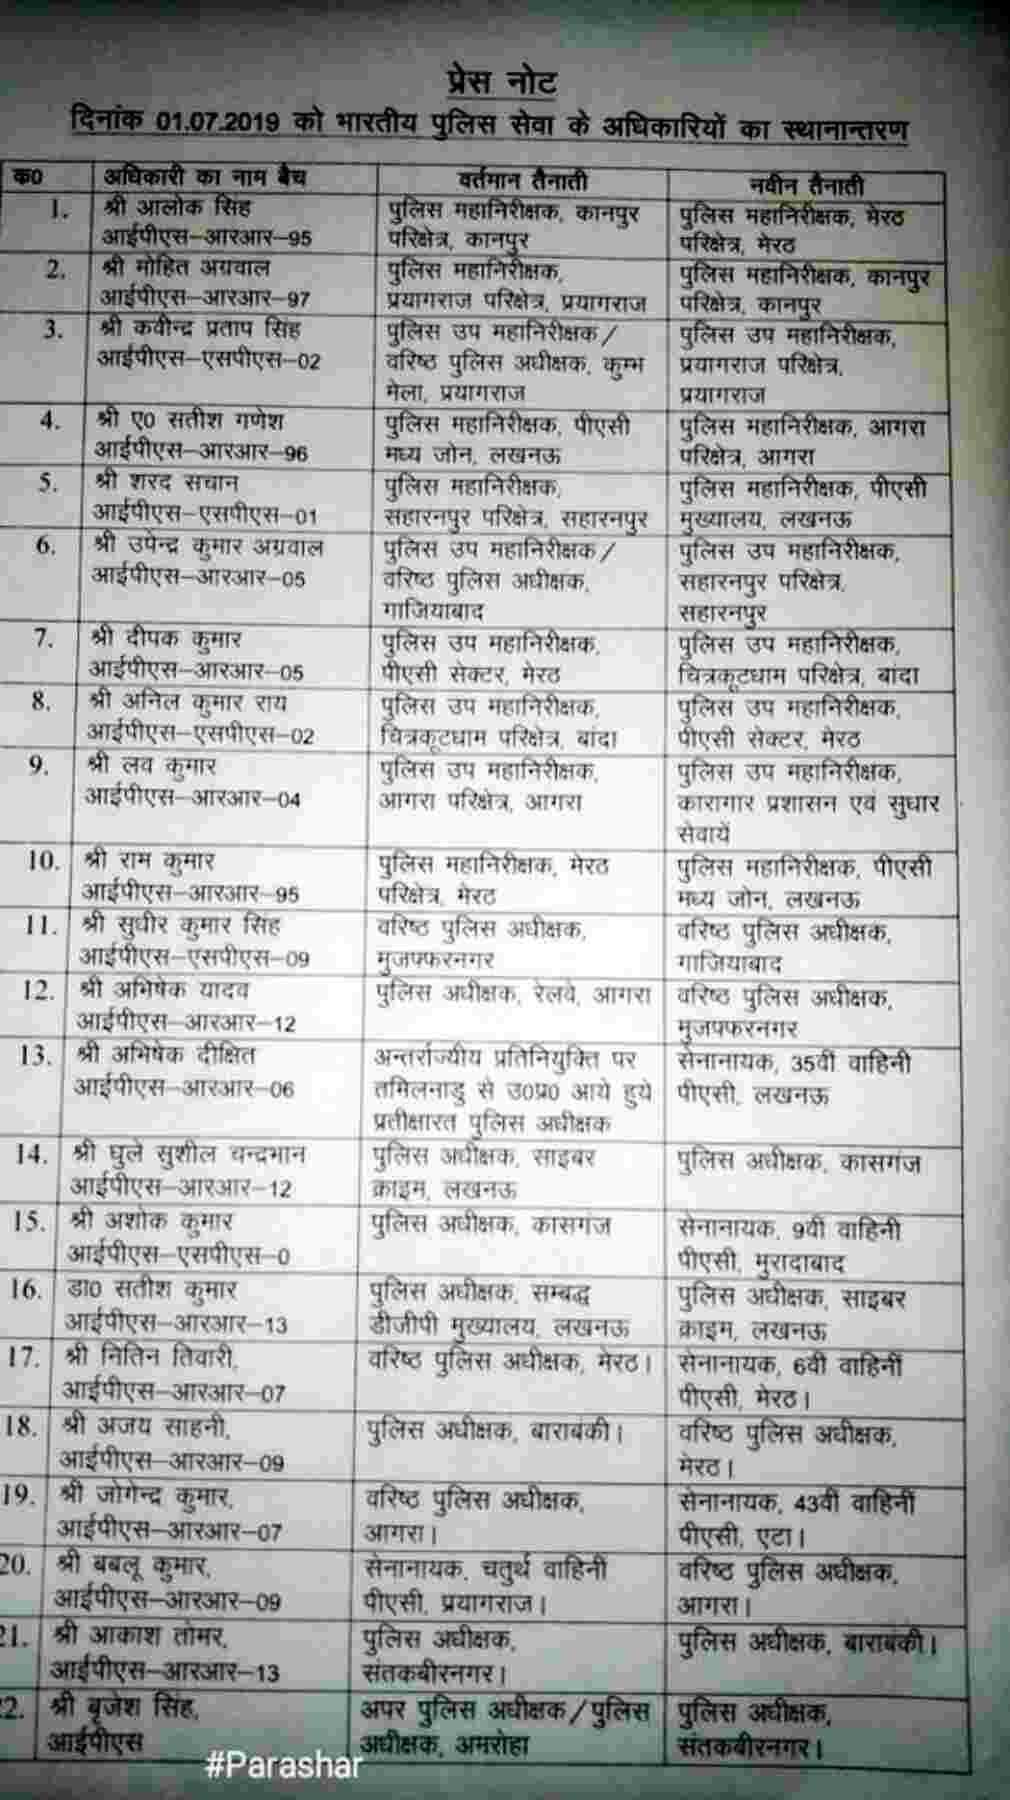 प्रेस नोट
दिनांक 01.07.2019 को भारतीय पुलिस सेवा के अधिकारियों का स्थानान्तरण
क0 अधिकारी का नाम बैच वर्तमान तैनाती नवीन तैनाती
1. श्री आलोक सिंह पुलिस महानिरीक्षक, कानपुर पुलिस महानिरीक्षक, मेरठ
आईपीएस-आरआर-95 परिक्षेत्र, कानपुर परिक्षेत्र, मेरठ
2. श्री मोहित अग्रवाल पुलिस महानिरीक्षक, पुलिस महानिरीक्षक, कानपुर
आईपीएस-आरआर-97 प्रयागराज परिक्षेत्र, प्रयागराज परिक्षेत्र, कानपुर
3. श्री कवीन्द्र प्रताप सिंह पुलिस उप महानिरीक्षक/ पुलिस उप महानिरीक्षक,
आईपीएस-एसपीएस-02 वरिष्ठ पुलिस अधीक्षक, कुम्भ प्रयागराज परिक्षेत्र,
मेला, प्रयागराज प्रयागराज
4. श्री ए0 सतीश गणेश पुलिस महानिरीक्षक, पीएसी पुलिस महानिरीक्षक, आगरा
आईपीएस-आरआर-96 मध्य जोन, लखनऊ परिक्षेत्र, आगरा
5. श्री शरद सचान पुलिस महानिरीक्षक, पुलिस महानिरीक्षक, पीएसी
आईपीएस-एसपीएस-01 सहारनपुर परिक्षेत्र, सहारनपुर मुख्यालय, लखनऊ
6. श्री उपेन्द्र कुमार अग्रवाल पुलिस उप महानिरीक्षक/ पुलिस उप महानिरीक्षक,
आईपीएस-आरआर-05 वरिष्ठ पुलिस अधीक्षक, सहारनपुर परिक्षेत्र,
गाजियाबाद सहारनपुर
7. श्री दीपक कुमार पुलिस उप महानिरीक्षक, पुलिस उप महानिरीक्षक,
आईपीएस-आरआर-05 पीएसी सेक्टर, मेरठ चित्रकूटधाम परिक्षेत्र, बांदा
8. श्री अनिल कुमार राय पुलिस उप महानिरीक्षक, पुलिस उप महानिरीक्षक,
आईपीएस-एसपीएस-02 चित्रकूटधाम परिक्षेत्र, बांदा पीएसी सेक्टर, मेरठ
9. श्री लव कुमार पुलिस उप महानिरीक्षक, पुलिस उप महानिरीक्षक,
आईपीएस-आरआर-04 आगरा परिक्षेत्र, आगरा कारागार प्रशासन एवं सुधार
सेवायें
10. श्री राम कुमार पुलिस महानिरीक्षक, मेरठ पुलिस महानिरीक्षक, पीएसी
आईपीएस-आरआर-95 परिक्षेत्र, मेरठ मध्य जोन, लखनऊ
11. श्री सुधीर कुमार सिंह वरिष्ठ पुलिस अधीक्षक, वरिष्ठ पुलिस अधीक्षक,
आईपीएस-एसपीएस-09 मुजफ्फरनगर गाजियाबाद
12. श्री अभिषेक यादव पुलिस अधीक्षक, रेलवे, आगरा वरिष्ठ पुलिस अधीक्षक,
आईपीएस-आरआर-12 मुजफ्फरनगर
13. श्री अभिषेक दीक्षित अन्तर्राज्यीय प्रतिनियुक्ति पर सेनानायक, 35वीं वाहिनी
आईपीएस-आरआर-06 तमिलनाडु से उ0प्र0 आये हुये पीएसी, लखनऊ
प्रतीक्षारत पुलिस अधीक्षक
14. श्री घुले सुशील चन्द्रभान पुलिस अधीक्षक, साइबर पुलिस अधीक्षक, कासगंज
आईपीएस-आरआर-12 क्राइम, लखनऊ
15. श्री अशोक कुमार पुलिस अधीक्षक, कासगंज सेनानायक, 9वीं वाहिनी
आईपीएस-एसपीएस-0 पीएसी, मुरादाबाद
16. डा0 सतीश कुमार पुलिस अधीक्षक, सम्बद्ध पुलिस अधीक्षक, साइबर
आईपीएस-आरआर-13 डीजीपी मुख्यालय, लखनऊ क्राइम, लखनऊ
17. श्री नितिन तिवारी, वरिष्ठ पुलिस अधीक्षक, मेरठ। सेनानायक, 6वीं वाहिनीं
आईपीएस-आरआर-07 पीएसी, मेरठ।
18. श्री अजय साहनी, पुलिस अधीक्षक, बाराबंकी। वरिष्ठ पुलिस अधीक्षक,
आईपीएस-आरआर-09 मेरठ।
19. श्री जोगेन्द्र कुमार, वरिष्ठ पुलिस अधीक्षक, सेनानायक, 43वीं वाहिनीं
आईपीएस-आरआर-07 आगरा। पीएसी, एटा।
20. श्री बबलू कुमार, सेनानायक, चतुर्थ वाहिनीं वरिष्ठ पुलिस अधीक्षक,
आईपीएस-आरआर-09 पीएसी, प्रयागराज। आगरा।
21. श्री आकाश तोमर, पुलिस अधीक्षक, पुलिस अधीक्षक, बाराबंकी।
आईपीएस-आरआर-13 संतकबीरनगर।
22. श्री बृजेश सिंह, अपर पुलिस अधीक्षक/पुलिस पुलिस अधीक्षक,
आईपीएस अधीक्षक, अमरोहा संतकबीरनगर।
#Parashar